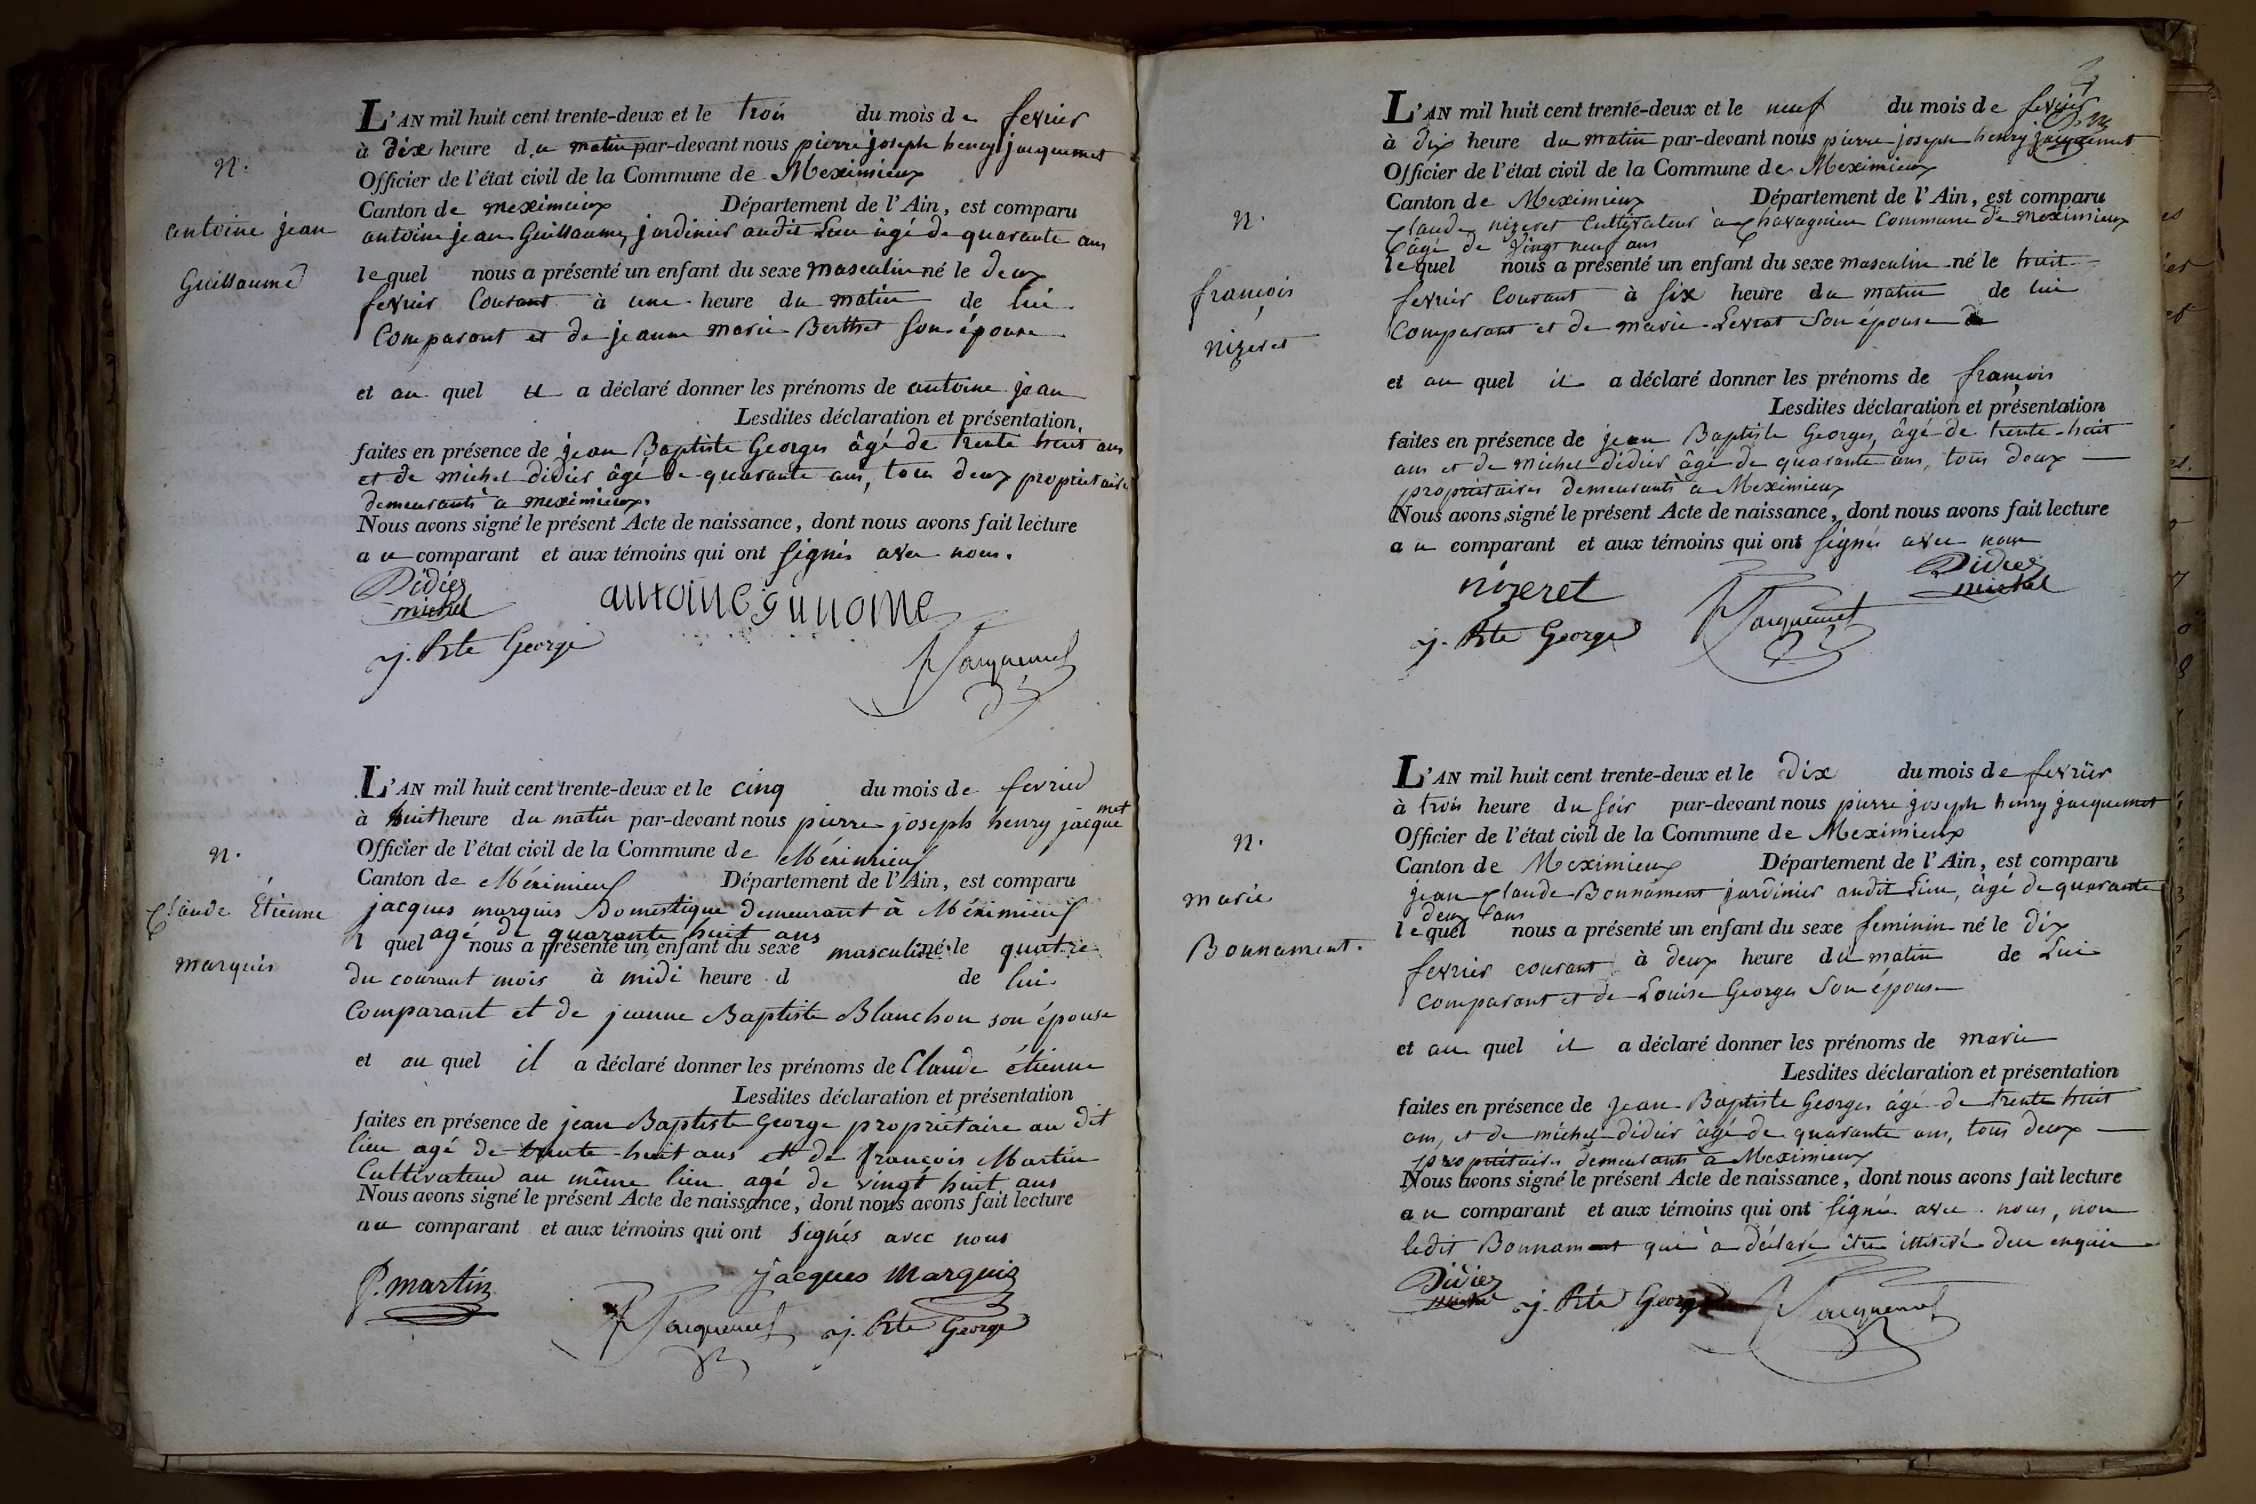 n.
antoine jean
Guillaume
L'AN mil huit cent trente-deux et le trois du mois de fevrier
à dix heure du matin par-devant nous pierre joseph henry jacquemet
Officier de l'état civil de la Commune de Meximieux
Canton de meximieux Département de l'Ain, est comparu
antoine jean Guillaume, jardinier audit Lieu âgé de quarante ans
lequel nous a présenté un enfant du sexe masculin né le deux
fevrier Courant à une heure du matin de lui
Comparant et de jeanne marie Berthet son épouse
et au quel il a déclaré donner les prénoms de antoine jean
Lesdites déclaration et présentation,
faites en présence de jean Baptiste Georges âgé de trente huit ans
et de michel didier âgé de quarante ans, tous deux propriétaires
demeurants à meximieux.
Nous avons signé le présent Acte de naissance, dont nous avons fait lecture
au comparant et aux témoins qui ont signés avec nous.
Didier
michel
antoine
j. Bte George
Jacquemet
n.
Claude Étienne
marquis
L'AN mil huit cent trente-deux et le cinq du mois de fevrier
à huit heure du matin par-devant nous pierre joseph henry jacquemet
Officier de l'état civil de la Commune de Méximieux
Canton de Méximieux Département de l'Ain, est comparu
jacques marquis Domestique demeurant à Méximieux
agé de quarante huit ans
l quel nous a présenté un enfant du sexe masculin né le quatre
du courant mois à midi heure d de lui
Comparant et de jeanne Baptiste Blanchon son épouse
et au quel il a déclaré donner les prénoms de Claude étienne
Lesdites déclaration et présentation
faites en présence de jean Baptiste George propriétaire au dit
lieu agé de trente-huit ans et de françois Martin
Cultivateur au même lieu agé de vingt huit ans
Nous avons signé le présent Acte de naissance, dont nous avons fait lecture
au comparant et aux témoins qui ont signés avec nous
P. martin
jacques Marquis
Jacquemet
j. Bte George
n.
françois
nizeret
L'AN mil huit cent trente-deux et le neuf du mois de fevrier
à dix heure du matin par-devant nous pierre joseph henry jacquemet
Officier de l'état civil de la Commune de Meximieux
Canton de Meximieux Département de l'Ain, est comparu
Claude nizeret Cultivateur à Chavagnieu Commune de meximieux
âgé de vingt neuf ans
lequel nous a présenté un enfant du sexe masculin né le huit
fevrier Courant à six heure du matin de lui
Comparant et de marie Levrat son épouse
et au quel il a déclaré donner les prénoms de françois
Lesdites déclaration et présentation
faites en présence de jean Baptiste Georges, âgé de trente-huit
ans et de michel didier âgé de quarante ans, tous deux
propriétaires demeurants à Meximieux
Nous avons signé le présent Acte de naissance, dont nous avons fait lecture
au comparant et aux témoins qui ont signés avec nous
Didier
michel
nizeret
Jacquemet
j. Bte George
n.
marie
Bonnament.
L'AN mil huit cent trente-deux et le dix du mois de fevrier
à trois heure du soir par-devant nous pierre joseph henry jacquemet
Officier de l'état civil de la Commune de Meximieux
Canton de Meximieux Département de l'Ain, est comparu
jean Claude Bonnament jardinier audit Lieu, âgé de quarante
deux ans
lequel nous a présenté un enfant du sexe feminin né le dix
fevrier courant à deux heure du matin de Lui
comparant et de Louise Georges son épouse
et au quel il a déclaré donner les prénoms de marie
Lesdites déclaration et présentation
faites en présence de jean Baptiste Georges âgé de trente huit
ans, et de michel didier âgé de quarante ans, tous deux
propriétaires demeurants à Meximieux
Nous avons signé le présent Acte de naissance, dont nous avons fait lecture
au comparant et aux témoins qui ont signés avec nous, non
ledit Bonnament qui a déclaré être illitéré de ce enquis
Didier
michel
j. Bte George
Jacquemet